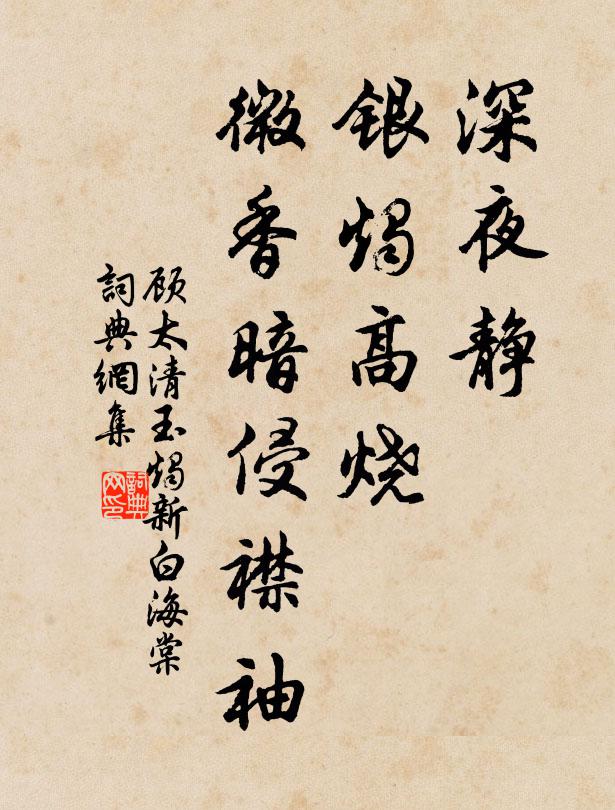 深夜静
银烛高烧
微香暗侵襟袖
顾太清玉烛新白海棠
詞典網集
詞典
网印